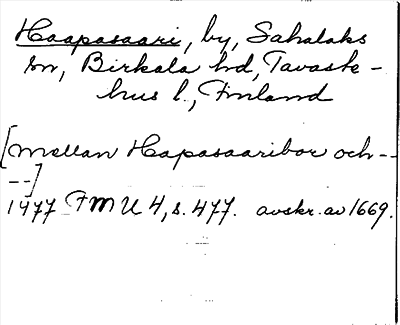 Haapasaari, by, Sahalaks
sn, Birkala hd, Tavaste-
hus l., Finland
[mellan Hapasaaribor och--
--]
1477 FMU 4, s. 477. avskr. av 1669.